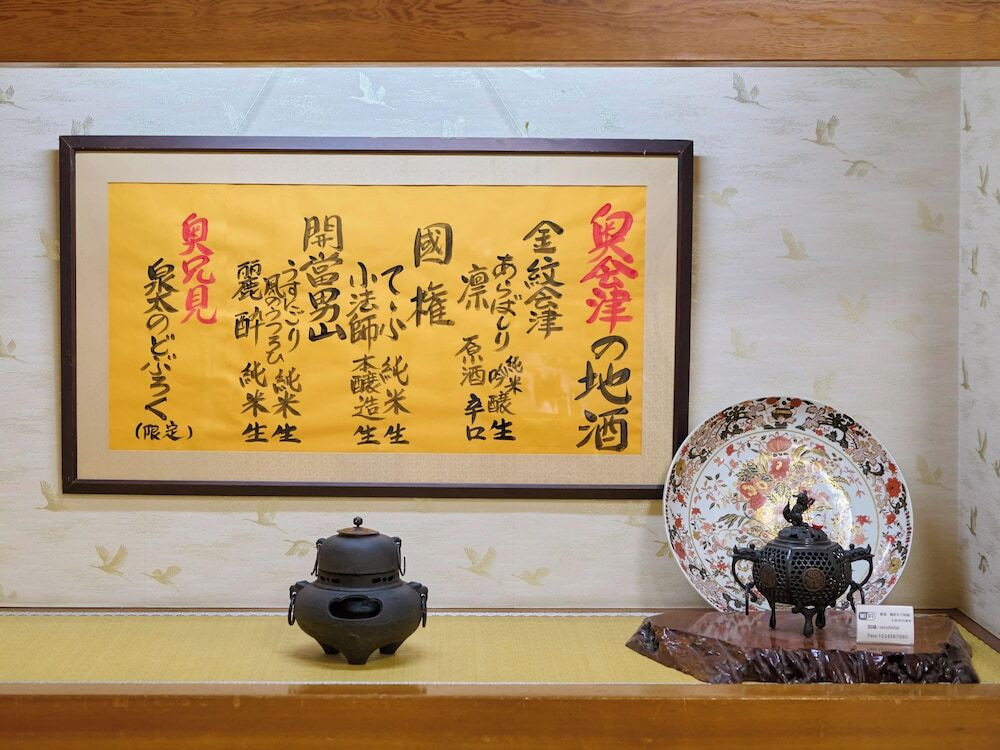 奥会津の地酒
金紋会津
あらばしり 純米吟醸生
凛 原酒 辛口
國権
てふ 純米生
小法師 本醸造生
開當男山
うすにごり
風のうつろひ 純米生
麗酔 純米生
奥只見
泉太のどぶろく(限定)
Pass:1234567890